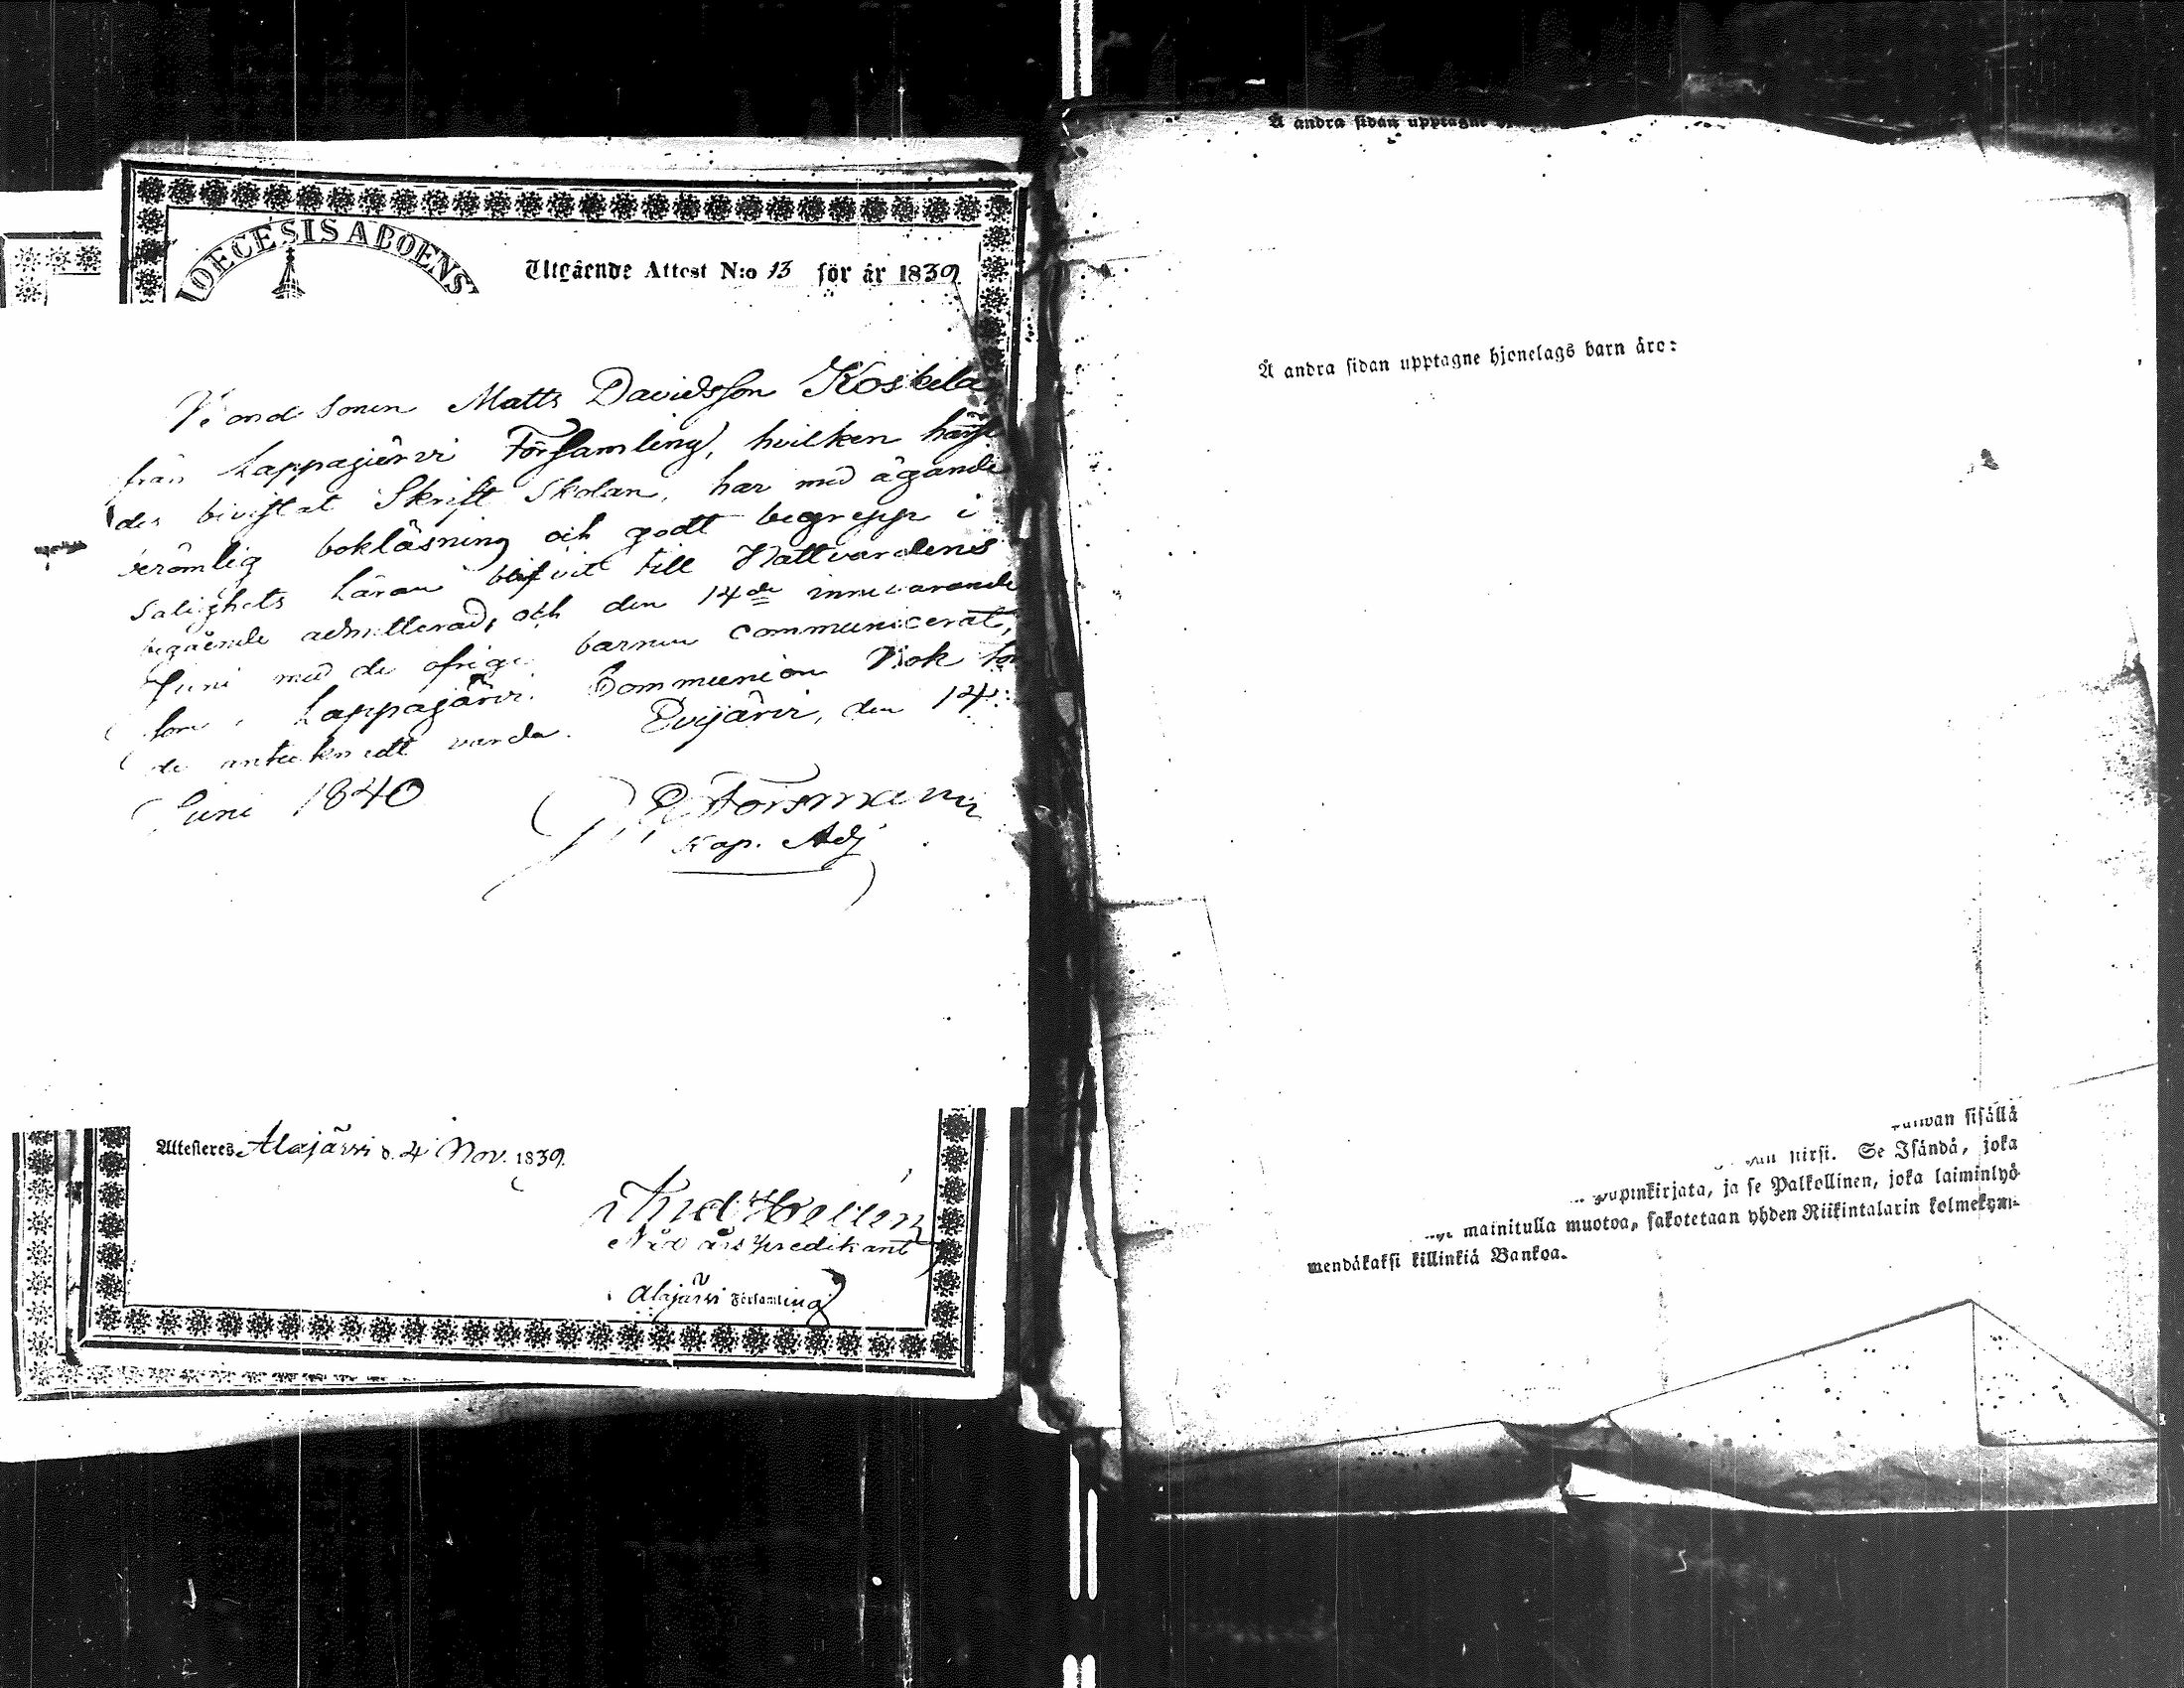 DIOECESIS ABOENS
Utgående Attest N:o 13 för år 1839
Bondsonen Matts Davidsson Koskela
från Lappajärvi Församling, hvilken härstä
des bivistat Skrift Skolan, har med ägande
berömlig bokläsning och godt begrepp i
Salighets Läran blifvit till Nattvardens
begående admitterad, och den 14de innevarande
Juni med de öfriga barnen communicerat,
Lappajärvi Communion Bok
de antecknadt varda. Evijärvi, den 14
Juni 1840
Forsmann
Kap. Adj
Attesteres Alajärvi d. 4 Nov. 1839.
Hellén
Nåd års predikant
Alajärvi Församling
Å andra sidan upptagne
Å andra sidan upptagne hjonelags barn äro:
sisällä
hirsi. Se Isändä, joka
ja se Palkollinen, joka laiminlyö
mainitulla muotoa, sakotetaan yhden Riikintalarin kolmekym-
mendäkaksi killinkiä Bankoa.